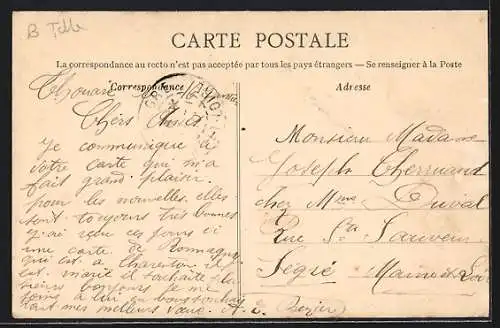 B Telle
CARTE POSTALE
La correspondance au recto n'est pas acceptée par tous les pays étrangers — Se renseigner à la Poste
Correspondance
Adresse
Thouaré
Chers Amis
Je communique à
votre carte qui m'a
fait grand plaisir
pour les nouvelles elles
sont toujours très bonnes
j'ai reçu ces jours ci
une carte de
qui est à Charenton il
est marié il souhaite
bonjours je me
joins à lui en
mes meilleurs vœux A. E.
Monsieur Madame
Joseph
chez Mme Duval
Rue St Sauveur
Segré Maine et Loir